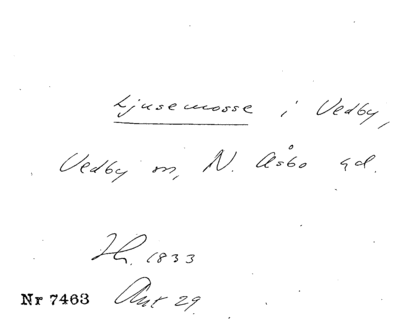 Ljusemosse i Vedby,
Vedby sn, N. Åsbo hd.
Jh. 1833
Nr 7463 Akt 29.